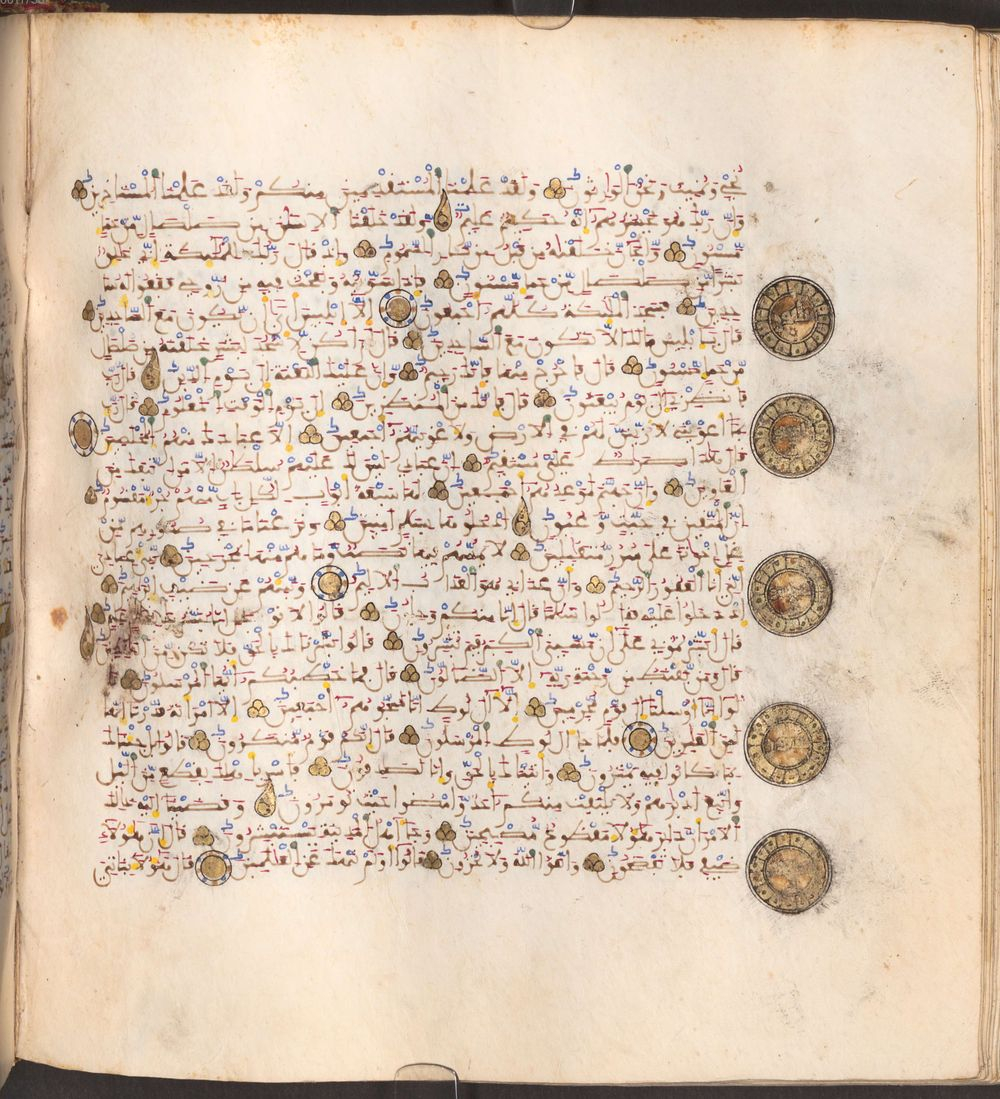 نحي ونميت ونحن الوارثون ولقد علمنا المستقدمين منكم ولقد علمنا المستأخرين
وإن ربك هو يحشرهم إنه حكيم عليم ولقد خلقنا الإنسن من صلصل من حمإ
مسنون والجان خلقنه من قبل من نار السموم وإذ قال ربك للملئكة إني خلق
بشرا من صلصل من حمإ مسنون فإذا سويته ونفخت فيه من روحي فقعوا له سا
جدين فسجد الملئكة كلهم أجمعون إلا إبليس أبى أن يكون مع الساجدين
قال يإبليس مالك ألا تكون مع الساجدين قال لم أكن لأسجد لبشر خلقته من صلصل
من حمإ مسنون قال فاخرج منها فإنك رجيم وإن عليك اللعنة إلى يوم الدين قال رب
فأنظرني إلى يوم يبعثون قال فإنك من المنظرين إلى يوم الوقت المعلوم قال رب
بما أغويتني لأزينن لهم في الأرض ولأغوينهم أجمعين إلا عبادك منهم المخلصين
قال هذا صراط علي مستقيم إن عبادي ليس لك عليهم سلطن إلا من اتبعك من
الغاوين وإن جهنم لموعدهم أجمعين لها سبعة أبوب لكل باب منهم جزء مقسوم
إن المتقين في جنت وعيون ادخلوها بسلم آمنين ونزعنا ما في صدورهم من
غل إخونا على سرر متقبلين لا يمسهم فيها نصب وما هم منها بمخرجين نبئ عبادي
أني أنا الغفور الرحيم وأن عذابي هو العذاب الأليم ونبئهم عن ضيف إبرهيم
إذ دخلوا عليه فقالوا سلما قال إنا منكم وجلون قالوا لا توجل إنا نبشرك بغلم عليم
قال أبشرتموني على أن مسني الكبر فبم تبشرون قالوا بشرنك بالحق فلا تكن من القنطين
قال ومن يقنط من رحمة ربه إلا الضالون قال فما خطبكم أيها المرسلون
قالوا إنا أرسلنا إلى قوم مجرمين إلا آل لوط إنا لمنجوهم أجمعين إلا امرأته قدرنا إنها
لمن الغبرين فلما جاء آل لوط المرسلون قال إنكم قوم منكرون قالوا بل جئنك
بما كانوا فيه يمترون وأتينك بالحق وإنا لصدقون فأسر بأهلك بقطع من اليل
واتبع أدبرهم ولا يلتفت منكم أحد وامضوا حيث تؤمرون وقضينا إليه ذلك
الأمر أن دابر هؤلاء مقطوع مصبحين وجاء أهل المدينة يستبشرون قال إن هؤلاء
ضيفي فلا تفضحون واتقوا الله ولا تخزون قالوا أولم ننهك عن العلمين قال هؤلاء بناتي